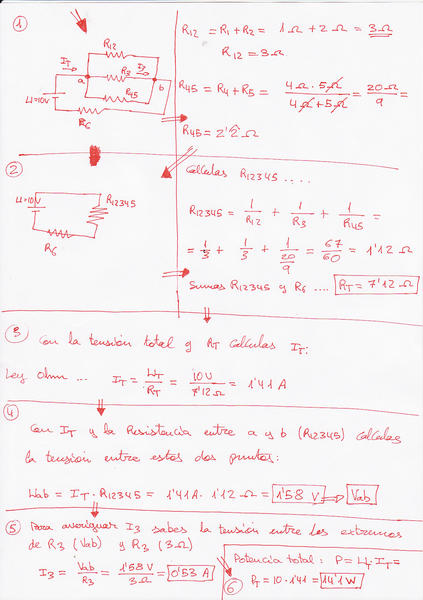 1
R12
IT
I3
a
R3
b
R45
U=10V
R6
R12 = R1 + R2 = 1Ω + 2Ω = 3Ω
R12 = 3Ω
R45 = R4 + R5 = 4Ω · 5Ω / 4Ω + 5Ω = 20Ω / 9 =
R45 = 2'2̂Ω
2
U=10V
R12345
R6
Calculas R12345 ....
R12345 = 1/R12 + 1/R3 + 1/R45 =
= 1/3 + 1/3 + 1/(20/9) = 67/60 = 1'12 Ω
Sumas R12345 y R6 .... RT = 7'12 Ω
3 Con la tensión total y RT calculas IT:
Ley Ohm ... IT = UT/RT = 10V/7'12Ω = 1'41 A
4
Con IT y la Resistencia entre a y b (R12345) calculas
la tensión entre estos dos puntos:
Uab = IT · R12345 = 1'41A · 1'12 Ω = 1'58 V Vab
5 Para averiguar I3 sabes la tensión entre los extremos
de R3 (Vab) y R3 (3Ω)
I3 = Vab/R3 = 1'58V/3Ω = 0'53 A
6
Potencia total: P = UT · IT =
PT = 10 · 1'41 = 14'1 W